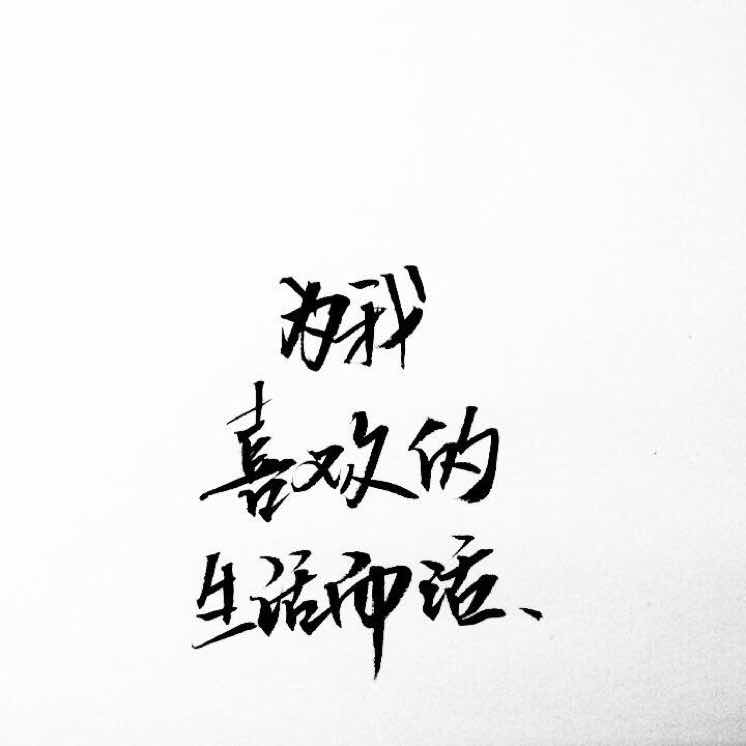 为我
喜欢的
生活而活、